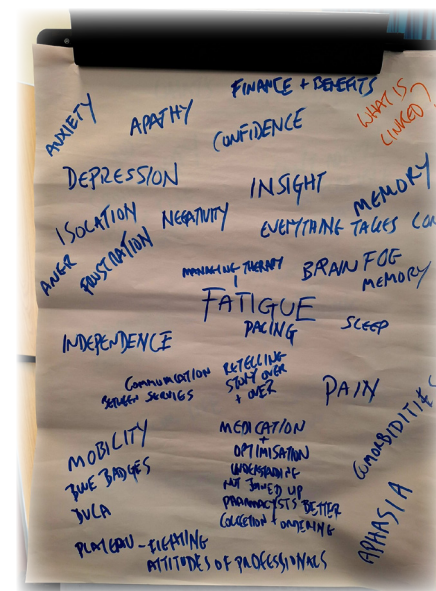 FINANCE + BENEFITS
WHAT IS
LINKED?
ANXIETY
APATHY
CONFIDENCE
DEPRESSION
INSIGHT
MEMORY
ISOLATION
NEGATIVITY
EVERYTHING TAKES
ANGER
FRUSTRATION
MANAGING THERAPY
BRAIN FOG
MEMORY
FATIGUE
PACING
SLEEP
INDEPENDENCE
COMMUNICATION
BETWEEN SERVICES
RETELLING
STORY OVER
+ OVER
PAIN
COMORBIDITIES
MOBILITY
BLUE BADGES
DVLA
MEDICATION
+
OPTIMISATION
UNDERSTANDING
NOT JOINED UP
PHARMACISTS BETTER
COLLECTION + ORDERING
APHASIA
PLATEAU - FIGHTING
ATTITUDES OF PROFESSIONALS